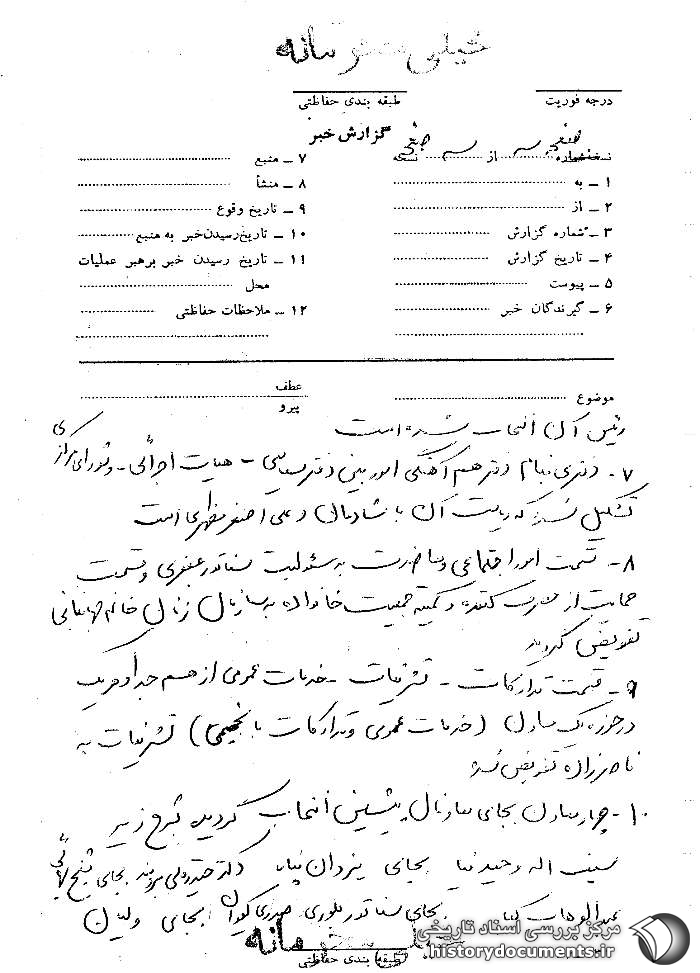 خیلی محرمانه
درجه فوریت
طبقه بندی حفاظتی
گزارش خبر
نسخه شماره از نسخه
۱ ـ به
۲ ـ از
۳ ـ شماره گزارش
۴ ـ تاریخ گزارش
۵ ـ پیوست
۶ ـ گیرندگان خبر
۷ ـ منبع
۸ ـ منشأ
۹ ـ تاریخ وقوع
۱۰ ـ تاریخ رسیدن خبر به منبع
۱۱ ـ تاریخ رسیدن خبر برهبر عملیات
محل
۱۲ ـ ملاحظات حفاظتی
موضوع
عطف
پیرو
رئیس آن انتخاب شده است
۷- دفتری بنام دفتر هم آهنگی امور بین دفتر سیاسی - هیات اجرائی - و شورای مرکزی
تشکیل شد که ریاست آن با شادمان و علی اصغر مظهری است
۸- قسمت امور اجتماعی و معاضدت به مسئولیت سناتور عنصری و قسمت
حمایت از مصرف کننده و کمیته جمعیت خانواده به سازمان زنان خانم جهانبانی
تفویض گردید
۹- قسمت تدارکات - تشریفات - خدمات عمومی از هم جدا و هریک
در حوزه یک معاون (خدمات عمومی و تدارکات با نجیمی) تشریفات به
ناصرزاده تفویض شد
۱۰- چهار معاون بجای معاونان پیشین انتخاب گردید بشرح زیر
سیف اله وحیدنیا بجای یزدان پناه دکتر حیدرقلی برومند بجای شیخ بهائی
عبدالوهاب بجای سناتور بلوری حیدری بجای ولیان
خیلی محرمانه
طبقه بندی حفاظتی
مرکز بررسی اسناد تاریخی
historydocuments.ir